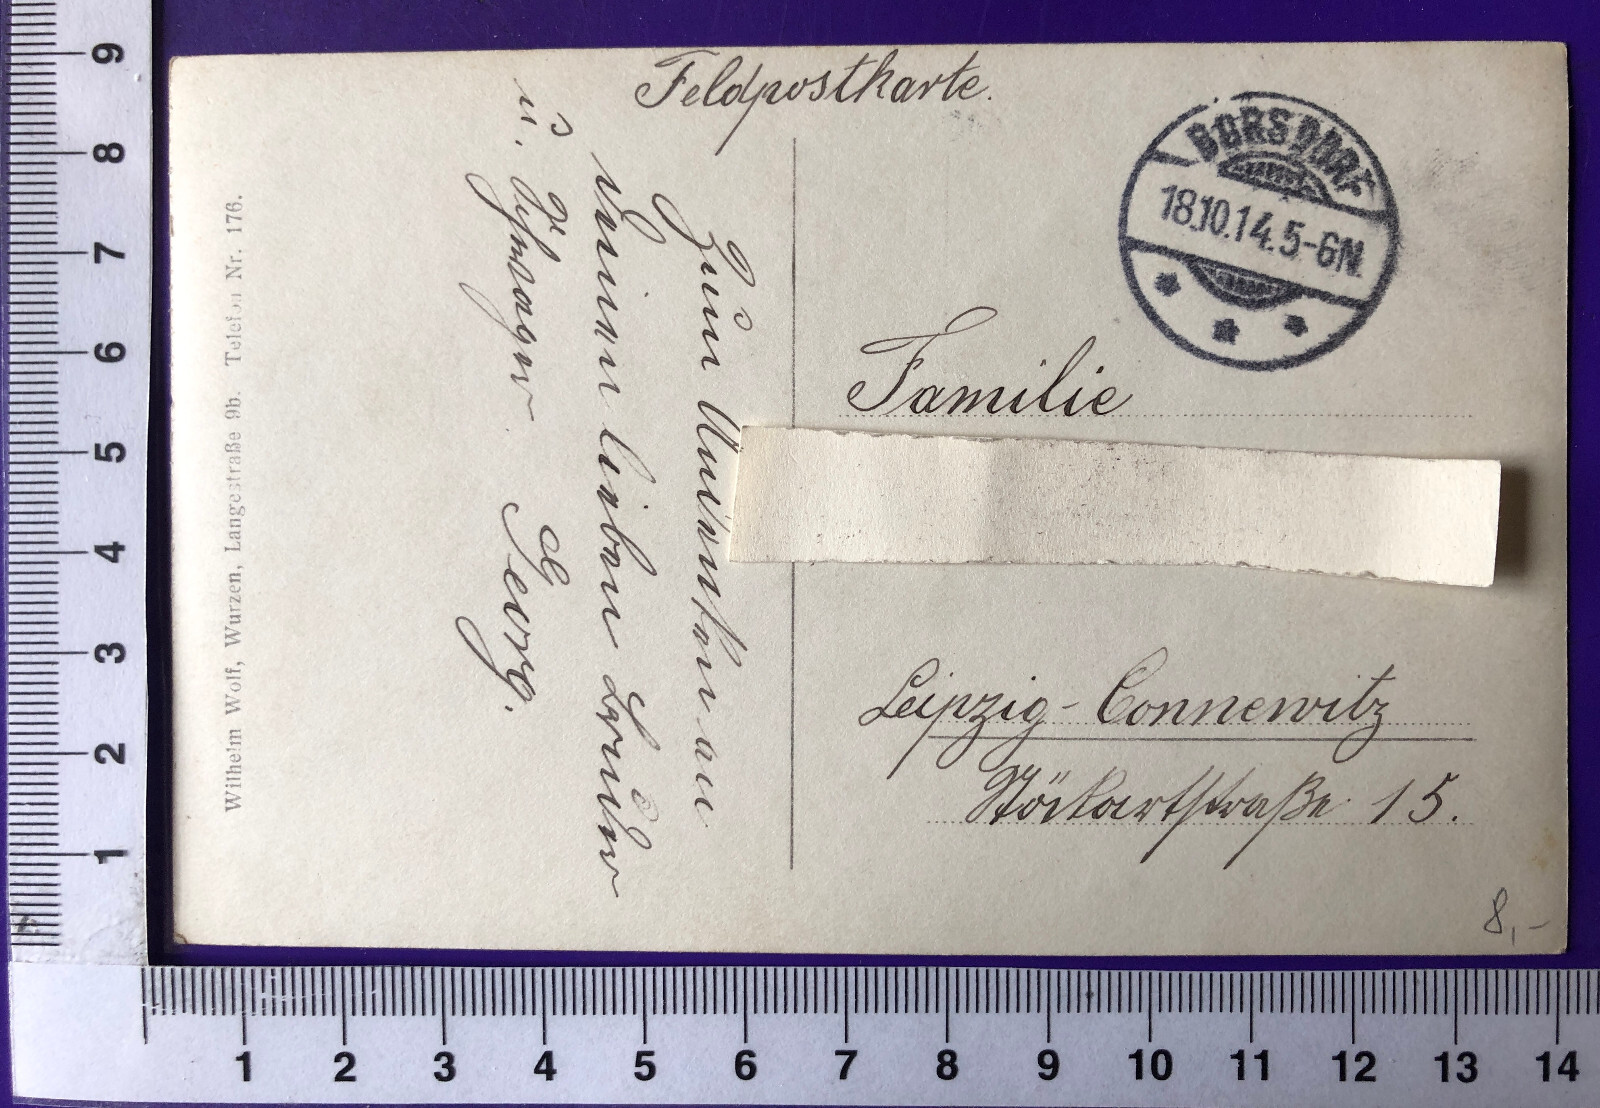 Feldpostkarte.
BORSDORF
18.10.14. 5-6N.
Familie
Leipzig-Connewitz
Stöckartstraße 15.
Zum Andenken an
Deinen lieben Bruder
u. Schwager
Georg.
Wilhelm Wolf, Wurzen, Langestraße 9b. Telefon Nr. 176.
8,-
9
8
7
6
5
4
3
2
1
1 2 3 4 5 6 7 8 9 10 11 12 13 14